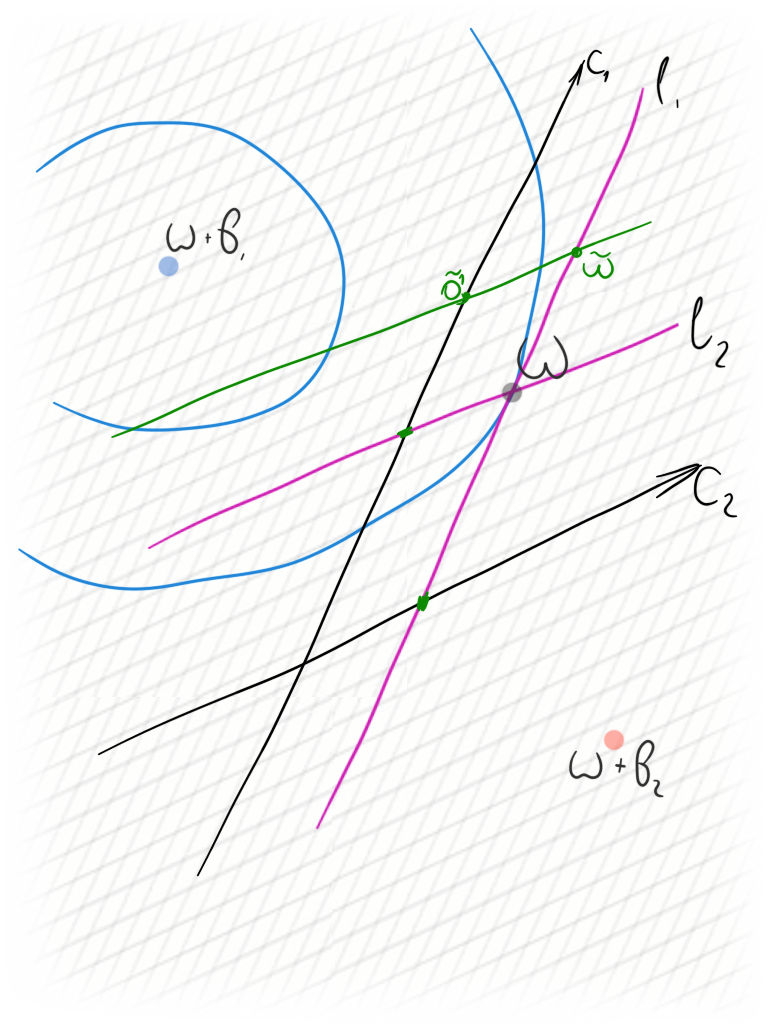 C₁
l₁
ω + β₁
õ₁
ω̃
l₂
ω
C₂
ω + β₂